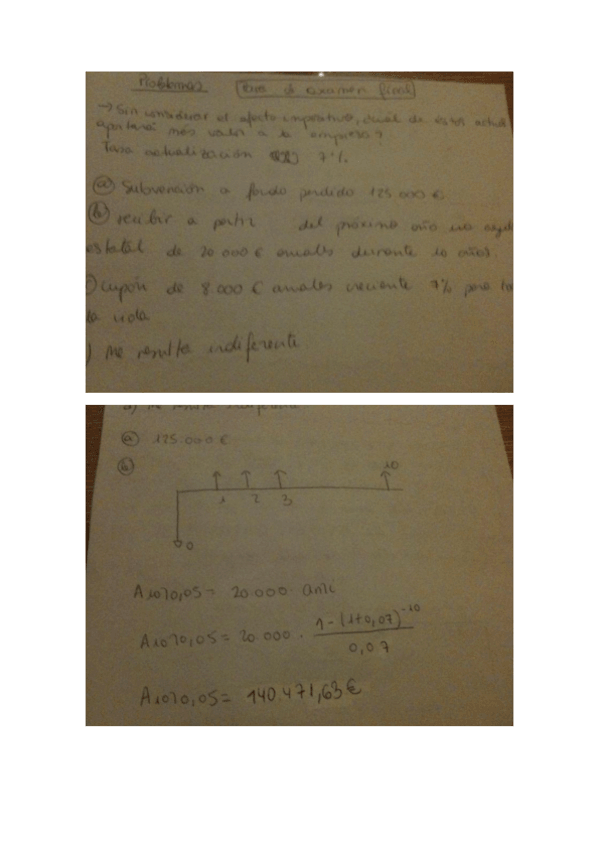 Problemas
examen final
→ Sin considerar el efecto impositivo, cuál de estas
aportará más valor a la empresa?
Tasa actualización 7%
a) Subvención a fondo perdido 125 000 €
b) recibir a partir del próximo año una
estatal de 20 000 € anuales durante 10 años.
) Cupón de 8.000 € anuales creciente 7% para
la vida.
) Me resulta indiferente
a) 125.000 €
b)
10
1 2 3
0
A1070,05 = 20.000.
A1070,05 = 20.000 . 1-(1+0,07)^-10
0,07
A1070,05 = 140.471,63 €